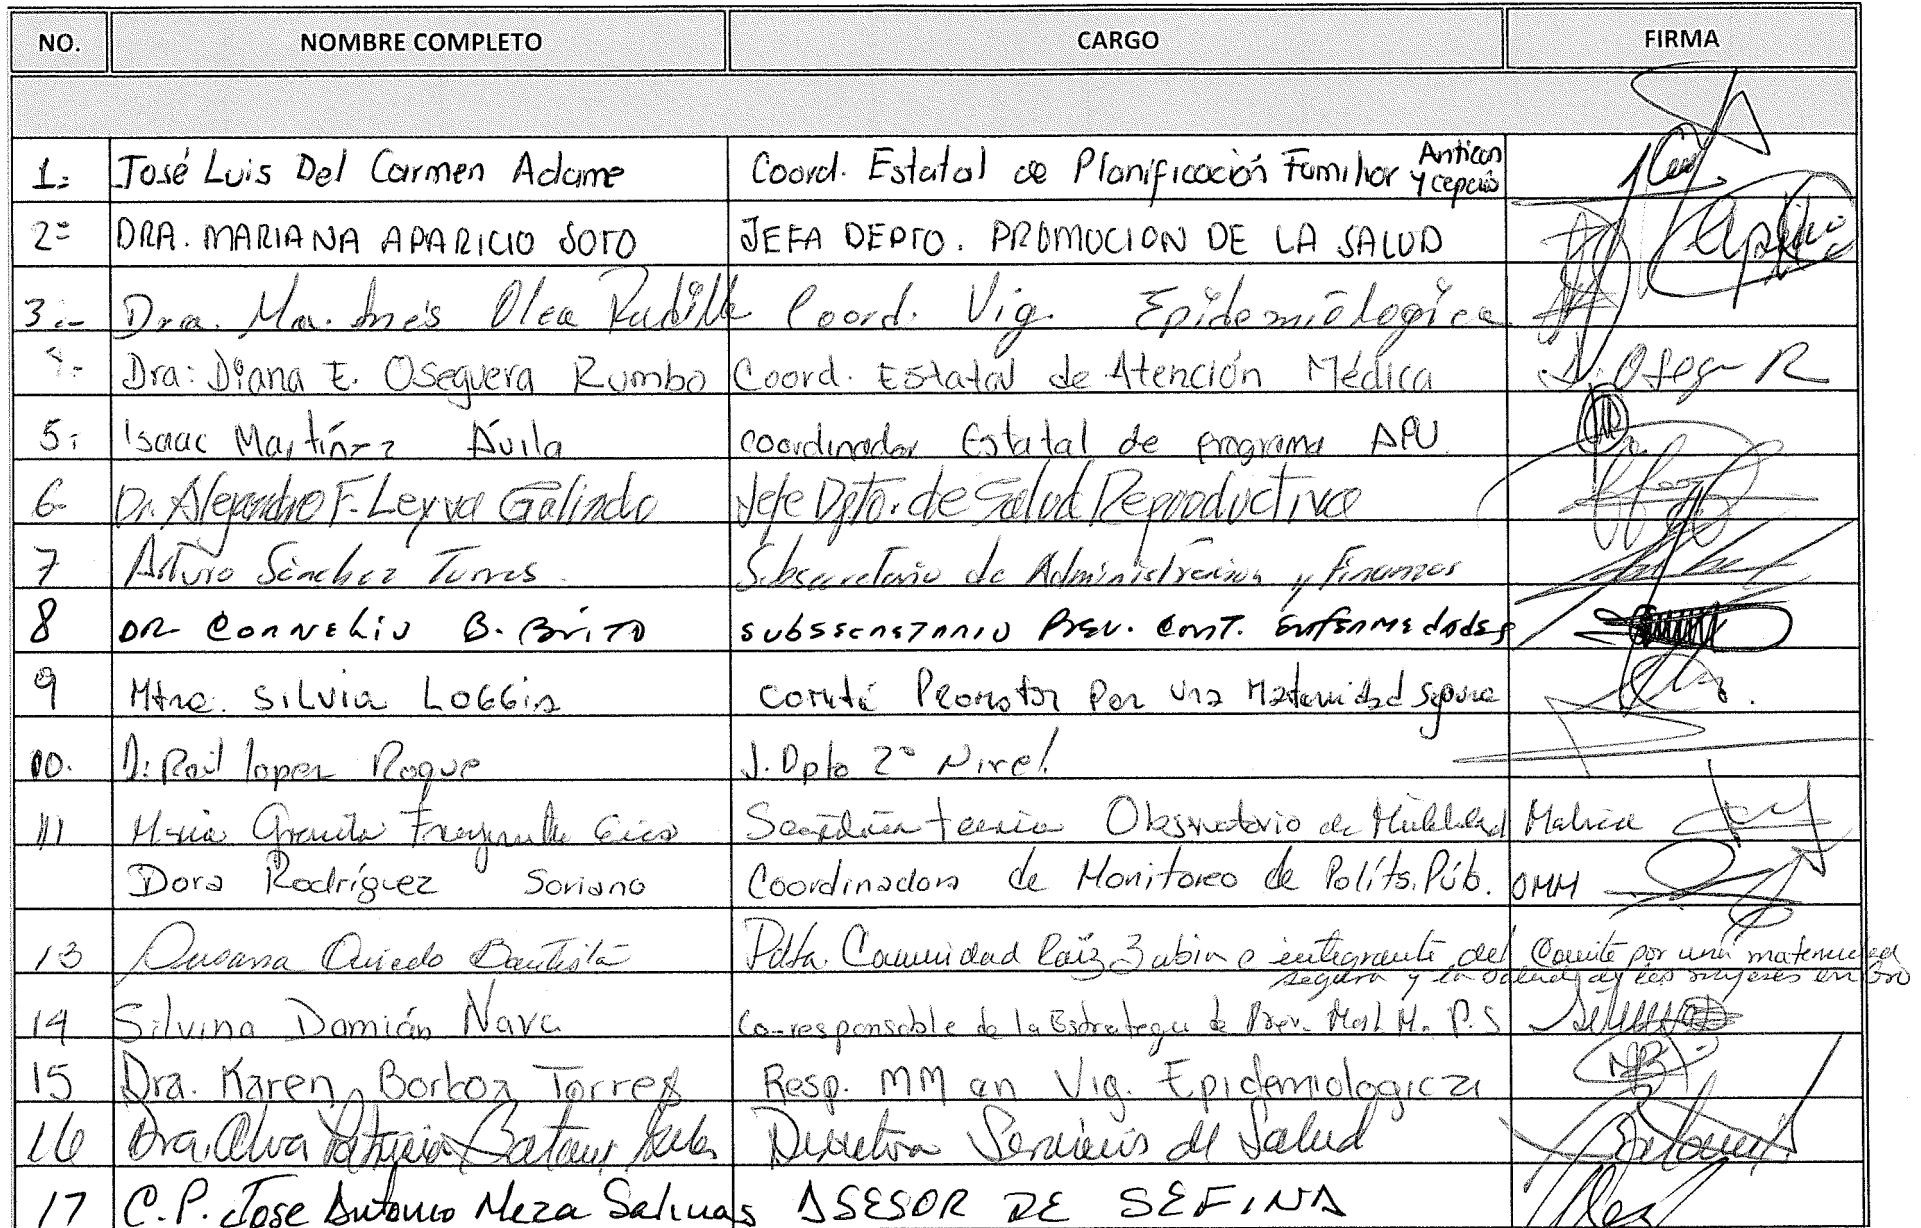 NO. NOMBRE COMPLETO CARGO FIRMA
1.- José Luis Del Carmen Adame Coord. Estatal de Planificación Familiar y Anticoncepción
2.- DRA. MARIANA APARICIO SOTO JEFA DEPTO. PROMOCION DE LA SALUD
3.- Dra. Ma. Inés Olea Coord. Vig. Epidemiológica
4.- Dra: Diana E. Oseguera Rumbo Coord. Estatal de Atención Médica
5.- Isaac Martínez Ávila coordinador Estatal de programa APU
6- Dr. Alejandro F. Leyva Galindo Jefe Dpto. de Salud Reproductiva
7 Arturo Sánchez Torres Subsecretario de Administración y Finanzas
8 DR CORNELIO B. BRITO SUBSSECRETARIO PREV. CONT. ENFERMEDADES
9 Mtra. SILVIA Comité Promotor Por una Maternidad Segura
10. Raúl lopez Roque J. Dpto 2º Nivel
11 Observatorio de
Dora Rodríguez Soriano Coordinadora de Monitoreo de Políts. Púb. OMM
13 Susana Oviedo Bautista Pdta. Comunidad Raíz Zubia e integrante del Comité por una maternidad
segura y la salud de las mujeres en Gro
14 Silvina Damián Nava Co-responsable de la Estrategia de Prev. Mort M. P.S
15 Dra. Karen Borboa Torres Resp. MM en Vig. Epidemiologica
16 Dra. Alva Patricia Directora Servicios de Salud
17 C.P. Jose Antonio Meza Salinas ASESOR DE SEFINA